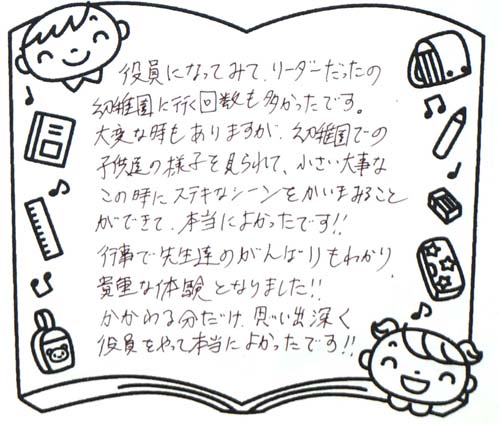 役員になってみて、リーダーだったの
幼稚園に行く回数も多かったです。
大変な時もありますが、幼稚園での
子供達の様子を見られて、小さい大事な
この時にステキなシーンをかいまみること
ができて、本当によかったです!!
行事で先生達のがんばりもわかり、
貴重な体験となりました!!
かかわる分だけ、思い出深く
役員をやって本当によかったです!!